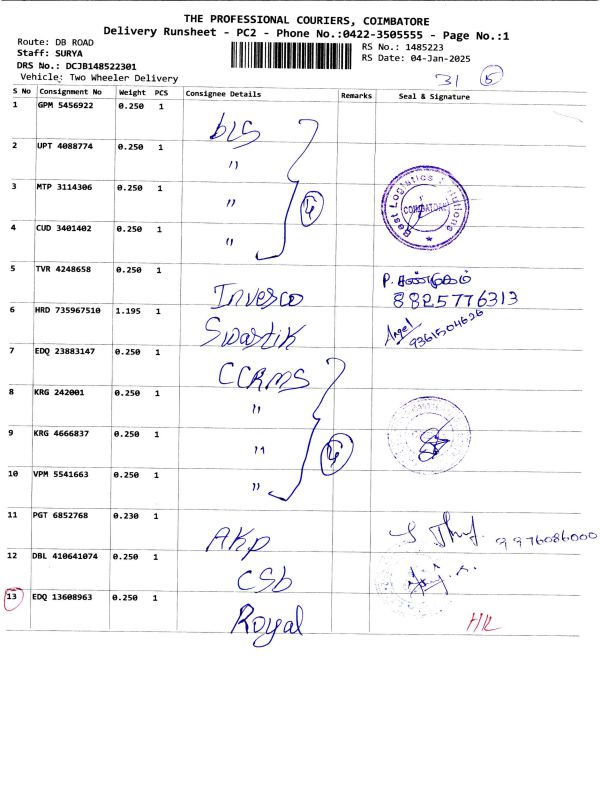 THE PROFESSIONAL COURIERS, COIMBATORE
Delivery Runsheet - PC2 - Phone No.:0422-3505555 - Page No.:1
Route: DB ROAD
RS No.: 1485223
Staff: SURYA
RS Date: 04-Jan-2025
DRS No.: DCJB148522301
Vehicle: Two Wheeler Delivery
31 5
S No Consignment No Weight PCS Consignee Details Remarks Seal & Signature
1 GPM 5456922 0.250 1 bLS
2 UPT 4088774 0.250 1 "
3 MTP 3114306 0.250 1 " 4
Best Logistics Solutions
COIMBATORE
4 CUD 3401402 0.250 1 "
5 TVR 4248658 0.250 1 Invesco P. சண்முகம்
8825776313
6 HRD 735967510 1.195 1 Swastik Angel
9361504626
7 EDQ 23883147 0.250 1 CCRMS
8 KRG 242001 0.250 1 "
9 KRG 4666837 0.250 1 " 4
10 VPM 5541663 0.250 1 "
11 PGT 6852768 0.230 1 AKP 9976086000
12 DBL 410641074 0.250 1 CSb
13 EDQ 13608963 0.250 1 Royal